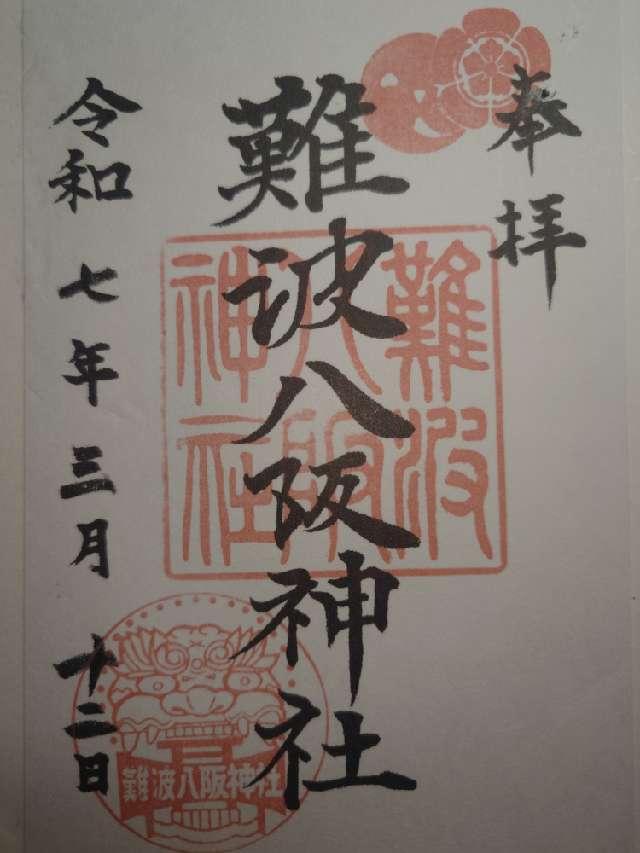 奉拝
難波八阪神社
難波八阪神社
令和七年三月十二日
難波八阪神社